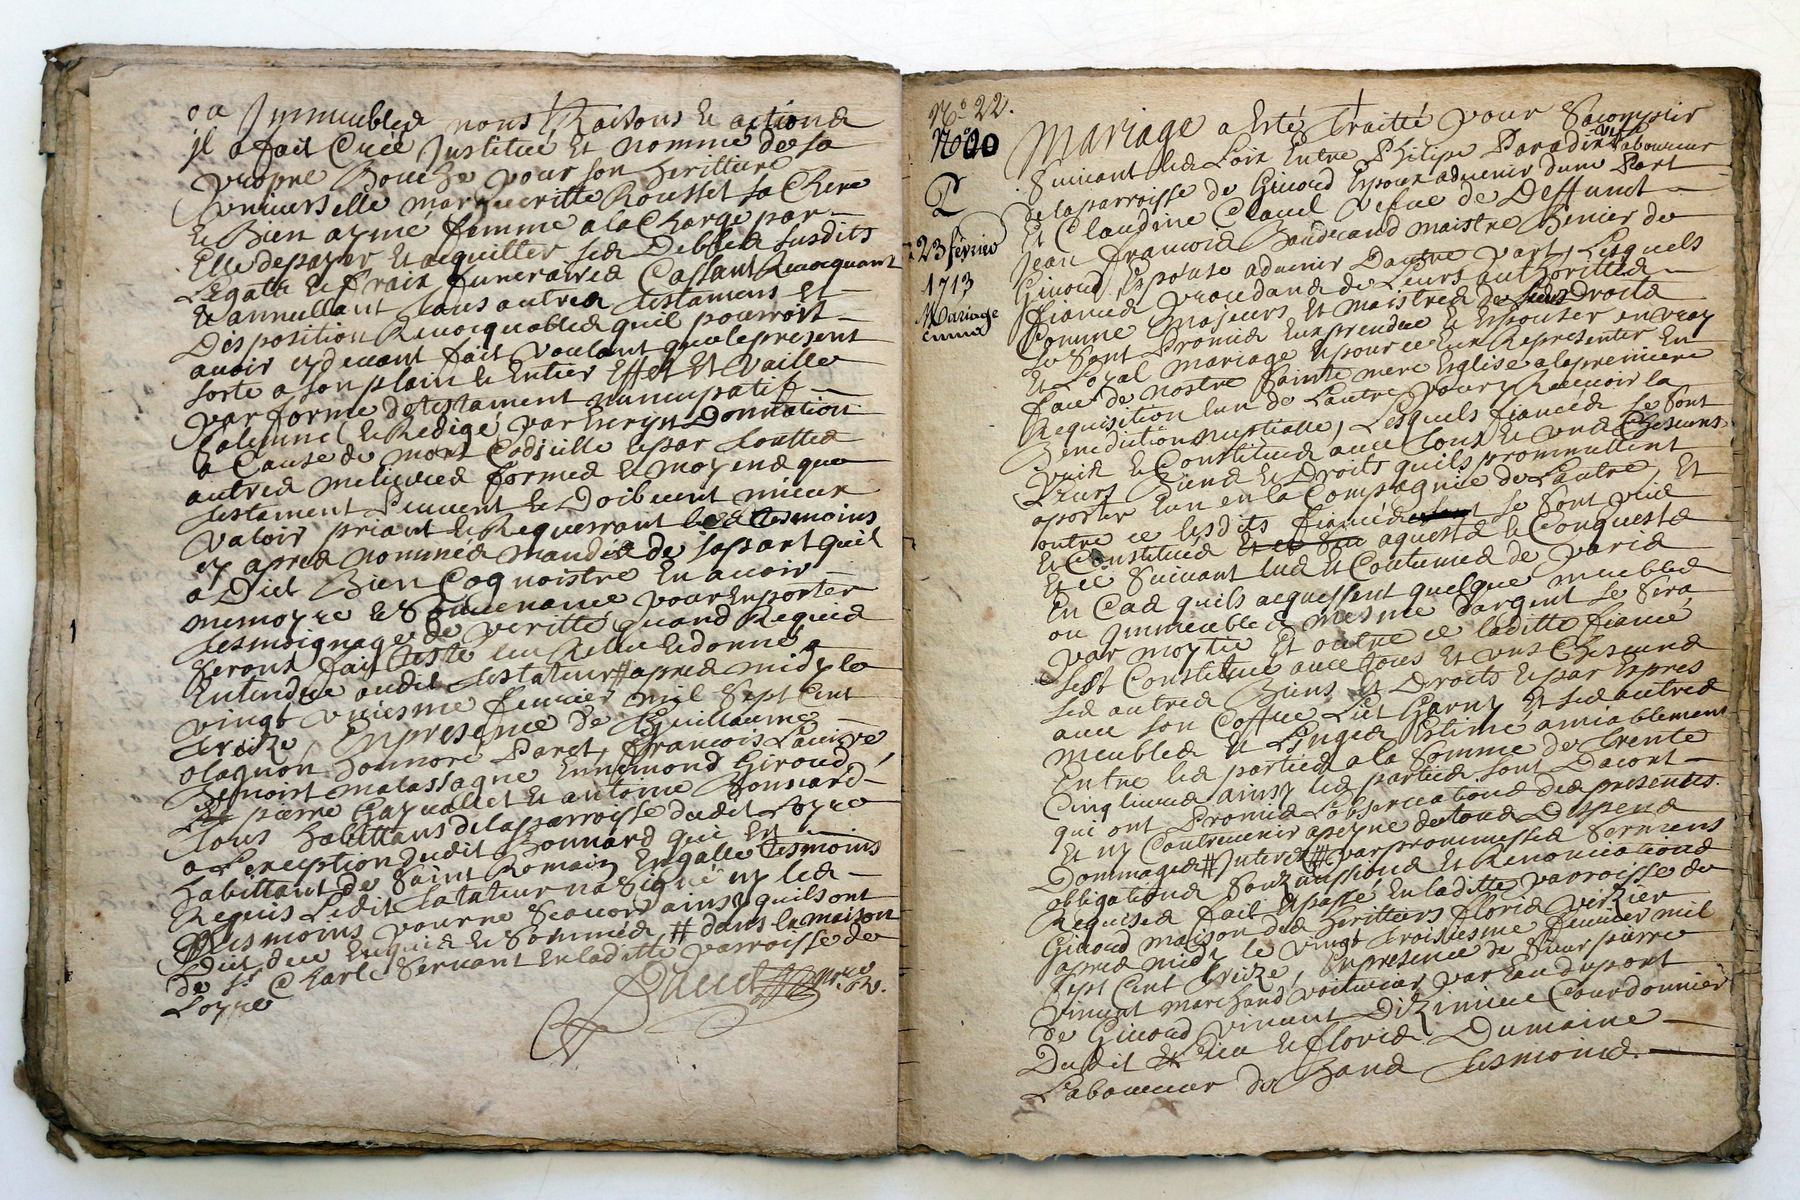 ou Immeubles noms Raisons et actions
il a fait Cree Institué Et nommé de sa
propre Bouche pour son heritiere
universelle margueritte Rousset sa Chere
et Bien aymé femme a la Charge par
Elle de payer Et acquitter ses Debtes susdits
Legats et fraix funeraires Cassant Revocquant
et annullant tous autres testamens Et
Disposition Revocquables quil pourroit
avoir cy devant fait voulant que le present
sorte a son plain et Entier Effet Et Vaille
par forme de testament nuncupatif
solemne et Redigé par Escrypt Donnation
a Cause de mort Codicille et par touttes
autres melieures formes et moyens que
testament Peuvent et Doibvent mieux
valoir priant et Requerrant les tesmoins
cy apres nommés mandés de sa part quil
a Dict Bien Cognoistre En avoir
memoyre et Souvenance pour En porter
tesmoignage de veritté quand Requis
seront fait Leu Releu et donné a
Entendre audit testateur # apres midy le
vingt uniesme fevrier mil sept Cent
treize, En presence de Guillaume
olagnon honnoré Paret, francois Lavirre
Benoist malassagne Ennemond Giroud
pierre Gaynallet et antoine Bonnard
tous habittans de la parroisse dudit Loyre
a L'exception dudit Bonnard qui Est
habittant de Saint Romain En galle tesmoins
Requis Ledit testateur na signé ny les
tesmoins pour ne scavoir ainsy quils ont
Dict de ce Enquis et Sommés # dans la maison
de Sr Charle Servant En laditte parroisse de
Loyre
No 22.
No 20
T
23 février
1713
Mariage
Mariage a Esté traitté pour Sacomplir
Suivant les Loix Entre Philipe Paradis Laboureur
de la parroisse de Givord Espoux advenir dune Part
Et Claudine Clavel vefue de Deffunct
Jean francois Bandrand maistre
Givord Espouse advenir Dautre part, Lesquels
fiancés procedans de Leurs authorittés
Comme Majeurs Et maistres de leurs Droits
se sont Promis Eux prendre et Espouser en vray
Et Loyal mariage et pour ce Eux Representer En
face de nostre sainte mere Eglise a la premiere
Requisition lun de Lautre pour y Recevoir la
Benediction nuptialle, Lesquels fiancés se sont
unis et Constitués avec tous et uns Chescuns
Leurs Biens et Droits quils promettent
aporter Lun en la Compagnie de Lautre, Et
outre ce lesdits fiancés se sont unis
Et Constitués aquests et Conquests
Et ce Suivant lus Et Coutumes de Paris
En Cas quils acquessent quelque meubles
ou Immeubles mesme dargent se sera
par moytié Et outre ce laditte fiancé
sest Constitué avec tous Et uns Chescuns
ses autres Biens Et Droits et par Expres
avec son Coffre Lict Garny Et ses autres
meubles et Linges Estimé amiablement
Entre les parties a la somme de trente
Cinq livres ainsy les parties sont Dacort
qui ont Promis L'observations des presentes.
Et ny Contrevenir a peyne de tous Despens
Dommages # Interests # par prommesses sermens
obligations Soubzmissions Et Renonciations
Requises fait et passé En laditte parroisse de
Givord maison des heritiers floris verzier
apres midy le vingt troisiesme fevrier mil
sept Cent treize, En presence de Sieur pierre
vincent marchand voiturier par Eau du pont
de Givord vincent Diziniere Courdonnier
Dudit Lieu et floris Dumaine
Laboureur de Bans tesmoins.